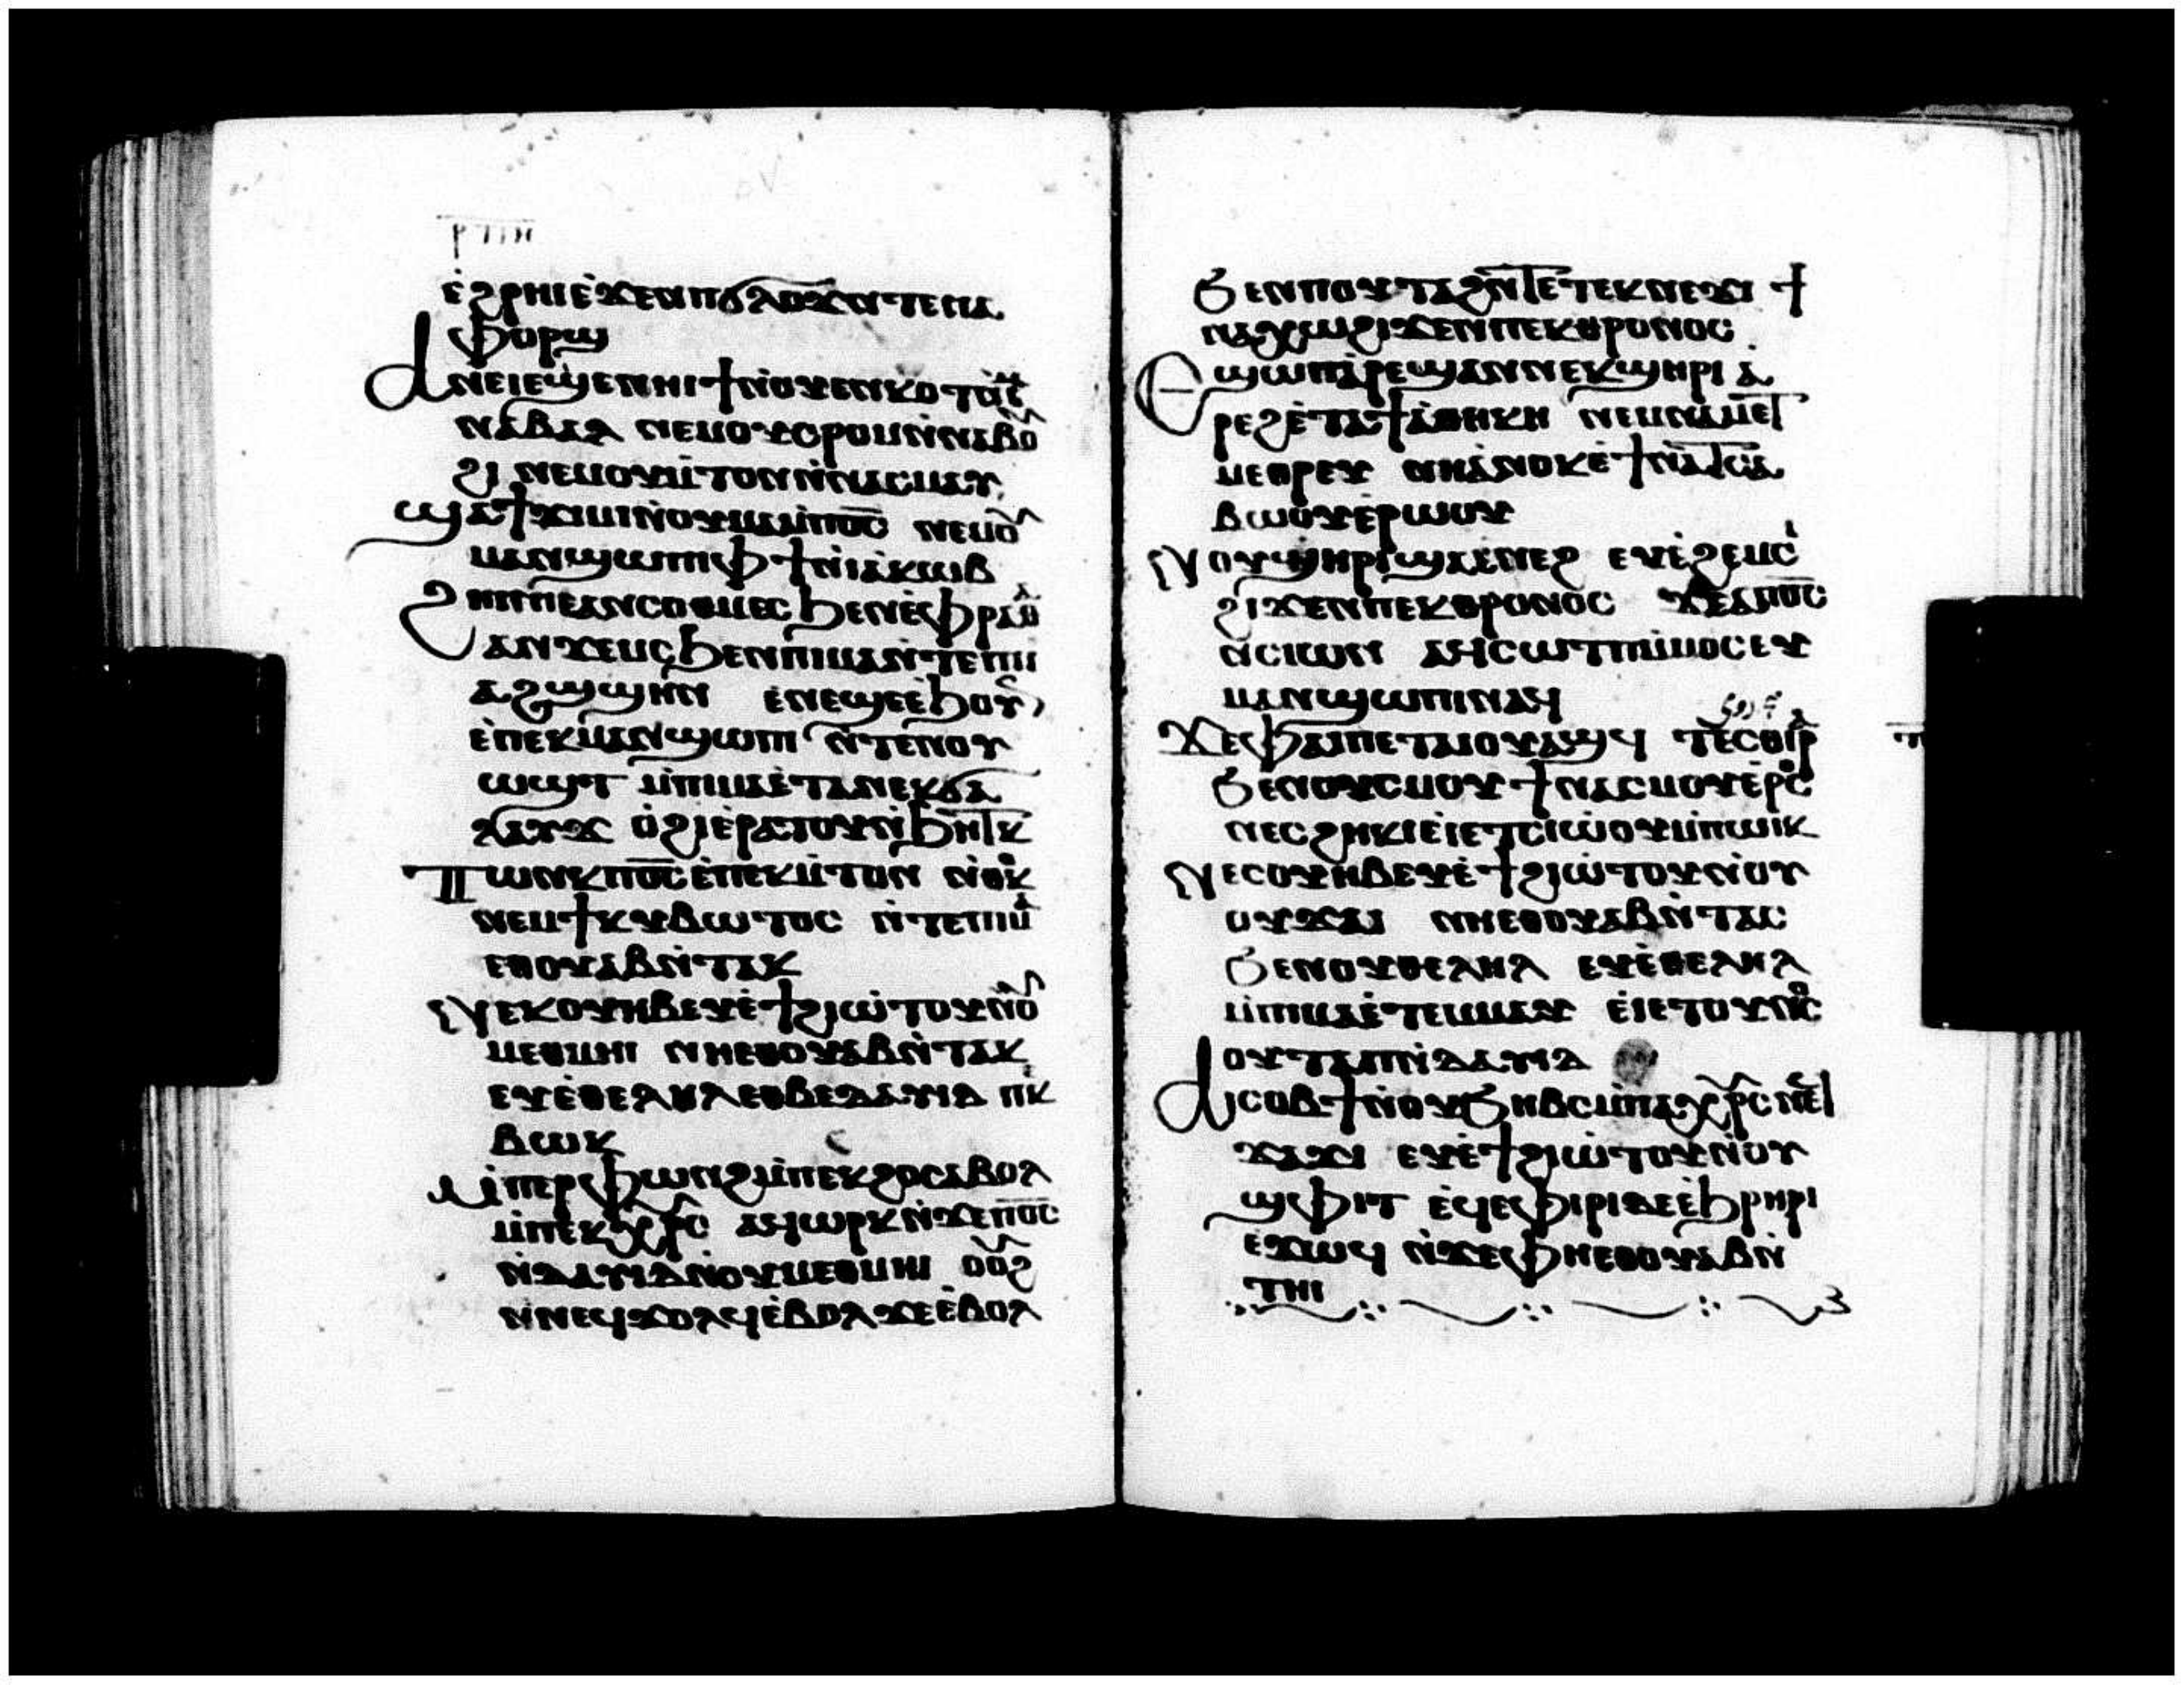 ⲉ̀ϩⲣⲏⲓⲉ̀ϫⲉⲛⲡϭⲗⲟϫⲛ̀ⲧⲉⲡⲁ
ⲫⲟⲣϣ
ⲁⲛⲉⲓⲉϣⲉⲛⲏⲓϯⲛ̀ⲟⲩⲉⲛⲕⲟⲧ
ⲛ̀ⲁⲃⲁⲗ ⲛⲉⲙⲟⲩϩⲣⲟⲙⲛ̀ⲛⲁⲃⲟ
ϩⲓ ⲛⲉⲙⲟⲩⲙ̀ⲧⲟⲛⲛ̀ⲛⲁⲥⲙⲁⲩ
ϣⲁϯϫⲓⲙⲓⲛ̀ⲟⲩⲙⲁⲙ̀ⲡⲟ̅ⲥ̅ ⲛⲉⲙⲟ
ⲙⲁⲛϣⲱⲡⲓⲙ̀ⲫϯⲛ̀ⲓⲁⲕⲱⲃ
ϩⲏⲡⲡⲉⲁⲛⲥⲟⲑⲙⲉⲥϧⲉⲛⲉ̀ⲫⲣⲁⲑ
ⲁⲛϫⲉⲙⲥϧⲉⲛⲡⲓⲙⲁⲛ̀ⲧⲉⲡⲓⲓ
ⲁϩϣϣⲏⲛ ⲉⲛⲉϣⲉⲉ̀ϧⲟⲩ
ⲉ̀ⲡⲉⲕⲙⲁⲛϣⲱⲡⲓ ⲛ̀ⲧⲉⲛⲟⲩ
ⲱϣⲧ ⲙ̀ⲡⲓⲙⲁⲉ̀ⲧⲁⲛⲉⲕϭⲁ
ⲗⲁⲩϫ ⲟ̀ϩⲓⲉ̀ⲣⲁⲧⲟⲩⲛ̀ϧⲏⲧⲕ
ⲧⲱⲛⲕⲡⲟ̅ⲥ̅ⲉ̀ⲡⲉⲕⲙ̀ⲧⲟⲛ ⲛ̀ⲑⲟⲕ
ⲛⲉⲙϯⲕⲩⲃⲱⲧⲟⲥ ⲛ̀ⲧⲉⲡⲓⲙ
ⲉⲑⲟⲩⲁⲃⲛ̀ⲧⲁⲕ
ⲛⲉⲕⲟⲩⲏⲃⲉⲩⲉ̀ϯϩⲓⲱ̀ⲧⲟⲩⲛ̀ⲟ
ⲙⲉⲑⲙⲏⲓ ⲛⲏⲉⲑⲟⲩⲁⲃⲛ̀ⲧⲁⲕ
ⲉⲩⲉ̀ⲑⲉⲗⲏⲗⲉⲑⲃⲉⲇⲁⲩⲓⲇ ⲡⲕ
ⲃⲱⲕ
ⲙ̀ⲡⲉⲣⲫⲱⲛϩⲙ̀ⲡⲉⲕϩⲟⲥⲁⲃⲟⲗ
ⲙ̀ⲡⲉⲕⲭⲣⲥ ⲁϥⲱⲣⲕⲛ̀ϫⲉⲡⲟ̅ⲥ̅
ⲛ̀ⲇⲁⲩⲓⲇⲛ̀ⲟⲩⲙⲉⲑⲙⲏⲓ ⲟⲟϩ
ⲛ̀ⲛⲉϥϫⲟⲗϥⲉ̀ⲃⲟⲗϫⲉⲉ̀ⲃⲟⲗ
ϧⲉⲛⲡⲟⲩⲧⲁϩⲛ̀ⲧⲉⲧⲉⲕⲛⲉϫⲓ ϯ
ⲛⲁⲭⲱϩⲓϫⲉⲛⲡⲉⲕⲑⲣⲟⲛⲟⲥ
ⲉϣⲱⲡⲁⲣⲉϣⲁⲛⲛⲉⲕϣⲏⲣⲓ ⲁ̀
ⲣⲉϩⲉ̀ⲧⲁϯⲁⲑⲏⲕⲏ ⲛⲉⲙⲛⲁⲙⲉⲧ
ⲙⲉⲑⲣⲉⲩ ⲛⲏⲁ̀ⲛⲟⲕⲉ̀ϯⲛⲁⲧⲥⲁ
ⲃⲱⲟⲩⲉ̀ⲣⲱⲟⲩ
ⲛⲟⲩϣⲏⲣⲓϣⲁⲉ̀ⲛⲉϩ ⲉⲩⲉ̀ϩⲉⲙⲥⲓ
ϩⲓϫⲉⲛⲡⲉⲕⲑⲣⲟⲛⲟⲥ ϫⲉⲁⲡⲟ̅ⲥ̅
ⲛ̀ⲥⲓⲱⲛ ⲁϥⲥⲱⲧⲡⲙ̀ⲙⲟⲥⲉⲩ
ⲙⲁⲛϣⲱⲡⲓⲛⲁϥ
ϫⲉⲫⲁⲓⲡⲉⲧⲁⲓⲟⲩⲁϣϥ ⲧⲉⲥⲑⲏⲣ
ϧⲉⲛⲟⲩⲥⲙⲟⲩ ϯⲛⲁⲥⲙⲟⲩⲉ̀ⲣⲟⲥ
ⲛⲉⲥϩⲏⲕⲓⲉ̀ⲓⲉ̀ⲧⲥⲓⲱⲟⲩⲙ̀ⲡⲱⲓⲕ
ⲛⲉⲥⲟⲩⲏⲃⲉⲩⲉ̀ϯϩⲓⲱ̀ⲧⲟⲩⲛ̀ⲟⲩ
ⲟⲩϫⲁⲓ ⲛⲏⲉⲑⲟⲩⲁⲃⲛ̀ⲧⲁⲥ
ϧⲉⲛⲟⲩⲑⲉⲗⲏⲗ ⲉⲩⲉ̀ⲑⲉⲗⲏⲗ
ⲙ̀ⲡⲓⲙⲁⲉ̀ⲧⲉⲙⲙⲁⲩ ⲉ̀ⲓⲉⲧⲟⲩⲛⲟⲥ
ⲟⲩⲧⲁⲡⲛ̀ⲇⲁⲩⲓⲇ
ⲁⲓⲥⲟⲃϯⲛ̀ⲟⲩϧⲏⲃⲥⲙ̀ⲡⲁⲭⲣⲥ
ϫⲁϫⲓ ⲉⲩⲉ̀ϯϩⲓⲱ̀ⲧⲟⲩⲛ̀ⲟⲩ
ϣⲫⲓⲧ ⲉϥⲉⲫⲓⲣⲓⲇⲉⲉ̀ϧⲣⲏⲣⲓ
ⲉϫⲱϥ ⲛ̀ϫⲉⲫⲏⲉⲑⲟⲩⲁⲃⲛ̀
ⲧⲏⲓ